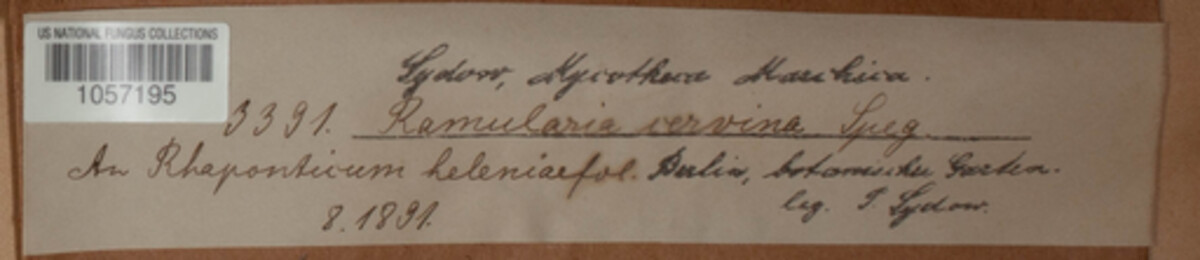 US NATIONAL FUNGUS COLLECTIONS
1057195
Sydow, Mycotheca Marchica.
3391. Ramularia cervina Speg.
An Rhaponticum heleniaefol. Berlin, botanischer Garten.
8.1891. leg. P. Sydow.